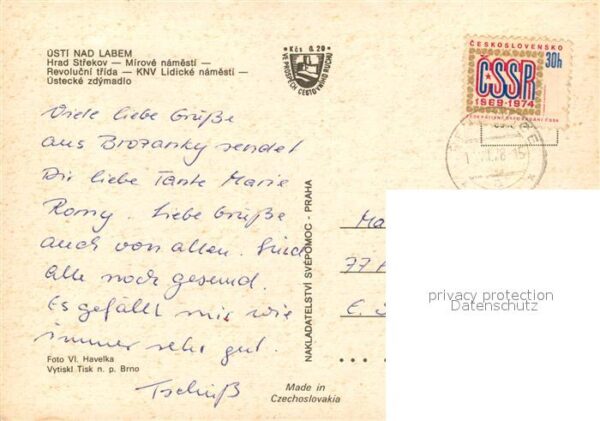 ÚSTÍ NAD LABEM
Hrad Střekov — Mírové náměstí —
Revoluční třída — KNV Lidické náměstí —
Ústecké zdymadlo
Kčs 0.20
VE PROSPĚCH CESTOVNÍHO RUCHU
ČESKOSLOVENSKO
30h
ČSSR
1969-1974
Viele liebe Grüße
aus Brozanky sendet
Dir liebe Tante Marie
Romy. Liebe Grüße
auch von allen. Sind
alle noch gesund.
Es gefällt mir wie
immer sehr gut.
Tschüß
NAKLADATELSTVÍ SVÉPOMOC - PRAHA
Ma
77
privacy protection
Datenschutz
Foto Vl. Havelka
Vytiskl Tisk n. p. Brno
Made in
Czechoslovakia